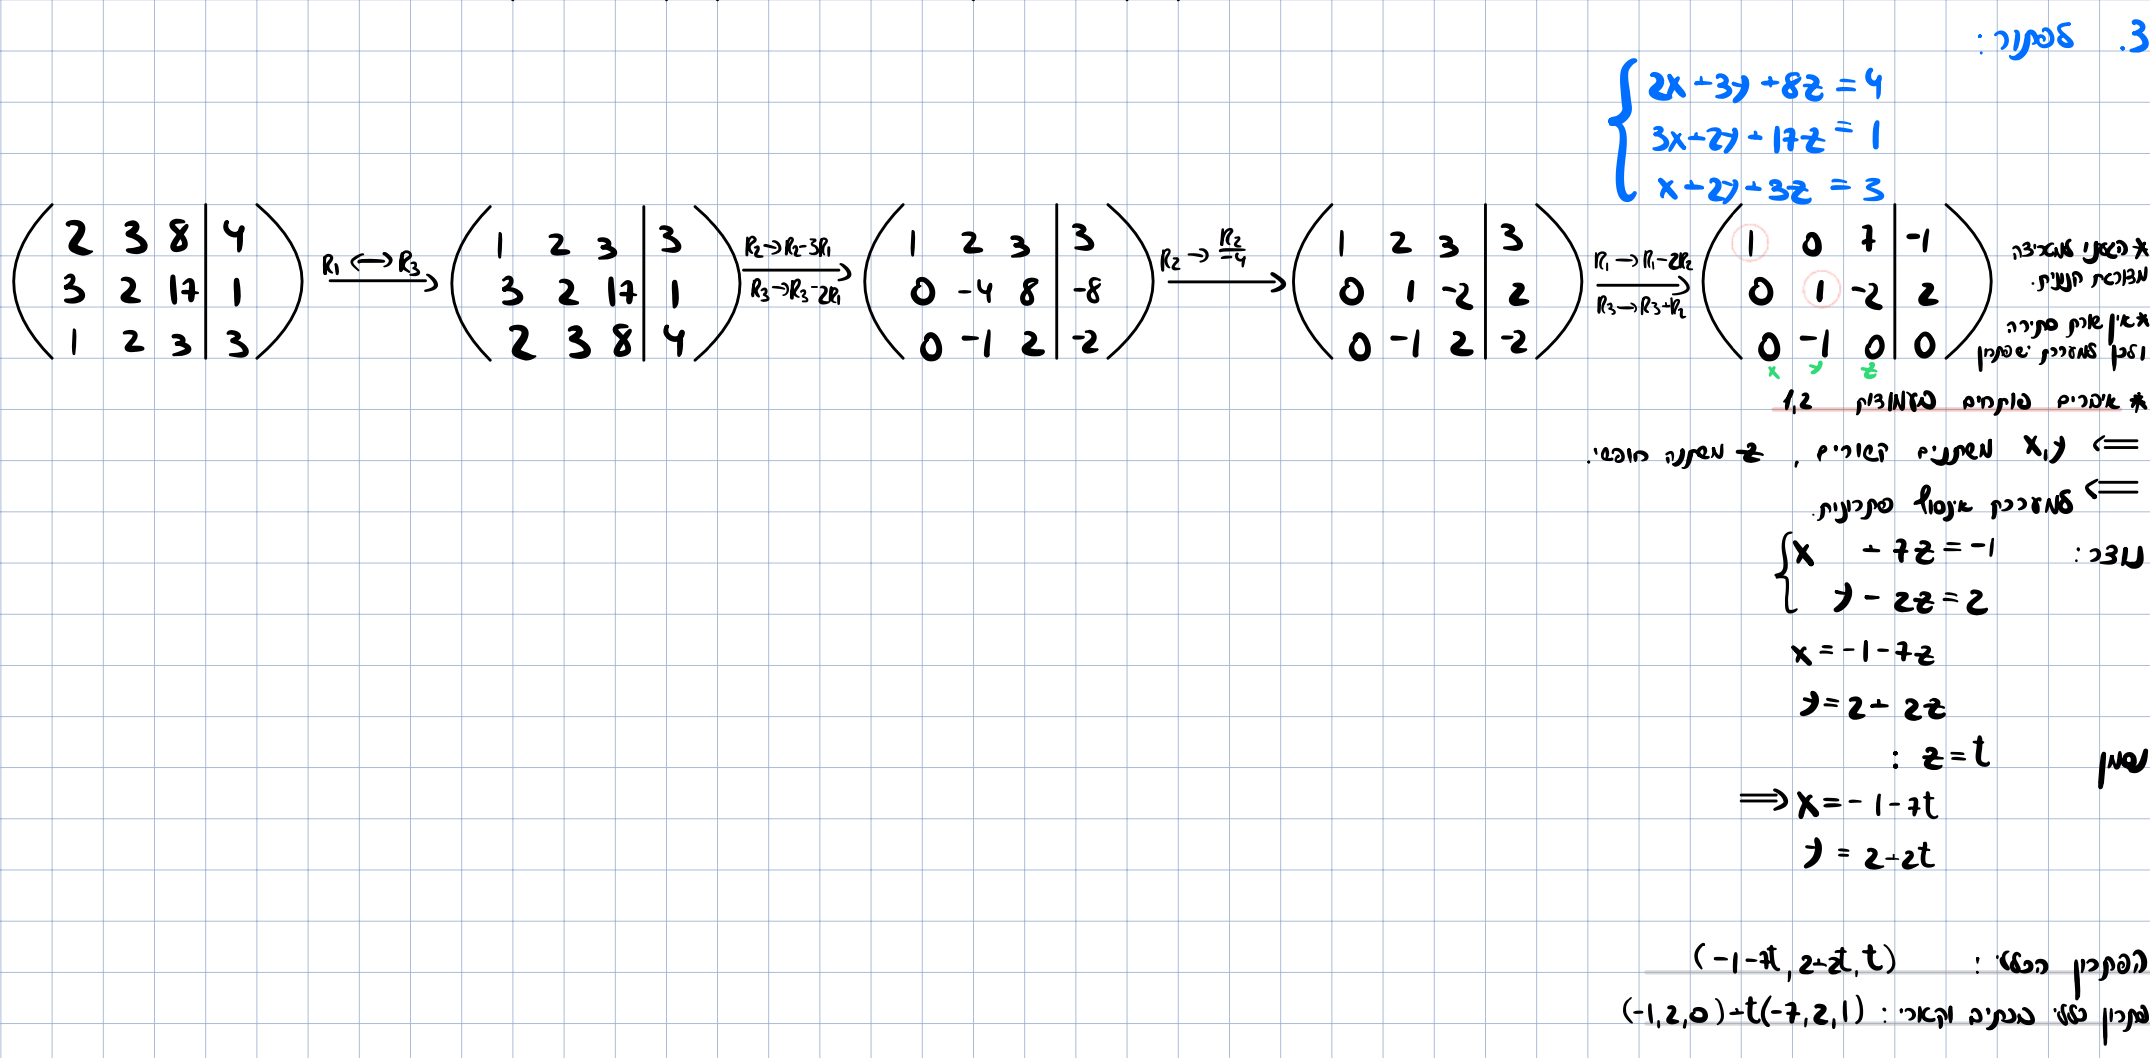 3. לפתור:
2x+3y+8z=4
3x+2y+17z=1
x+2y+3z=3
2 3 8 | 4
3 2 17 | 1
1 2 3 | 3
R₁ ↔ R₃
1 2 3 | 3
3 2 17 | 1
2 3 8 | 4
R₂→R₂-3R₁
R₃→R₃-2R₁
1 2 3 | 3
0 -4 8 | -8
0 -1 2 | -2
R₂→R₂/-4
1 2 3 | 3
0 1 -2 | 2
0 -1 2 | -2
R₁→R₁-2R₂
R₃→R₃+R₂
1 0 7 | -1
0 1 -2 | 2
0 -1 0 | 0
x y z
* הגענו למטריצה
מדורגת קנונית.
* אין שורת סתירה
ולכן למערכת יש פתרון
* איברים פותחים בעמודות 1,2
⇐ x,y משתנים קשורים, z משתנה חופשי.
⇐ למערכת אינסוף פתרונות.
נגדיר:
x +7z=-1
y-2z=2
x=-1-7z
y=2+2z
נסמן z=t:
⇒x=-1-7t
y=2+2t
הפתרון הכללי: (-1-7t,2+2t,t)
פתרון כללי בכתיב וקטורי: (-1,2,0)+t(-7,2,1)